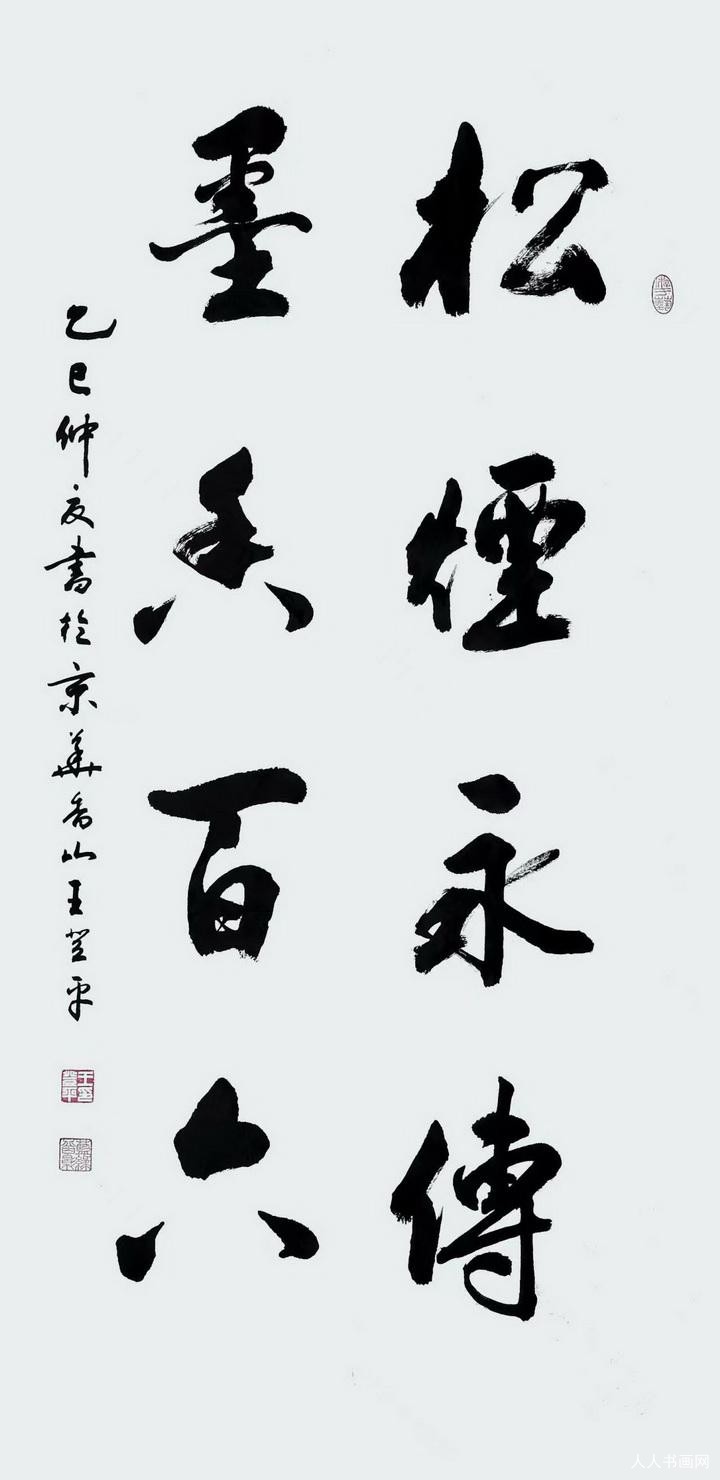 松煙永傳
墨百六
乙巳仲夏書於京華香山王登平
人人书画网